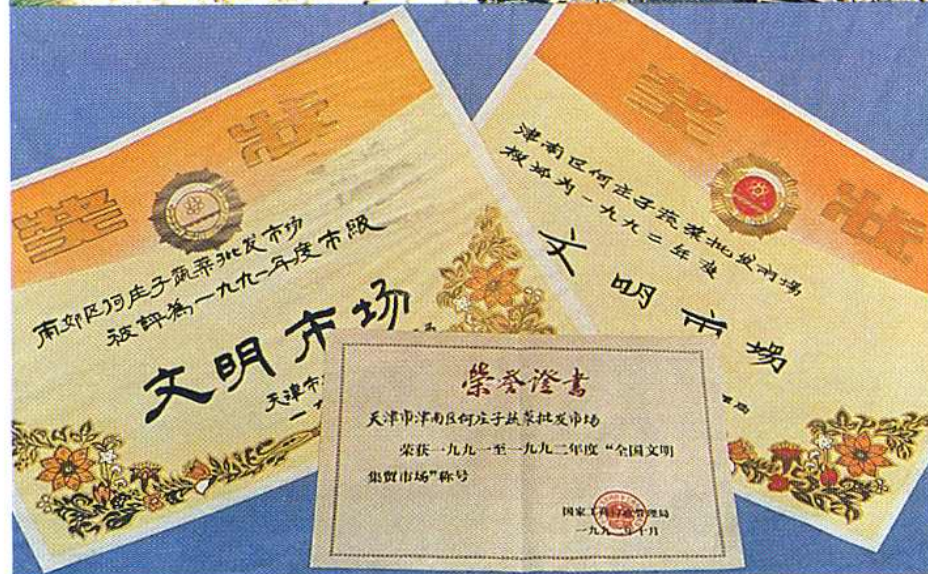 奖状
南郊区何庄子蔬菜批发市场
被評為一九九一年度市级
文明市场
天津市
一九
奖状
津南区何庄子蔬菜批发市場
被评为一九九二年度
文明市場
荣誉證書
天津市津南区何庄子蔬菜批发市场
荣获一九九一至一九九二年度“全国文明
集贸市场”称号
国家工商行政管理局
一九九 年十月